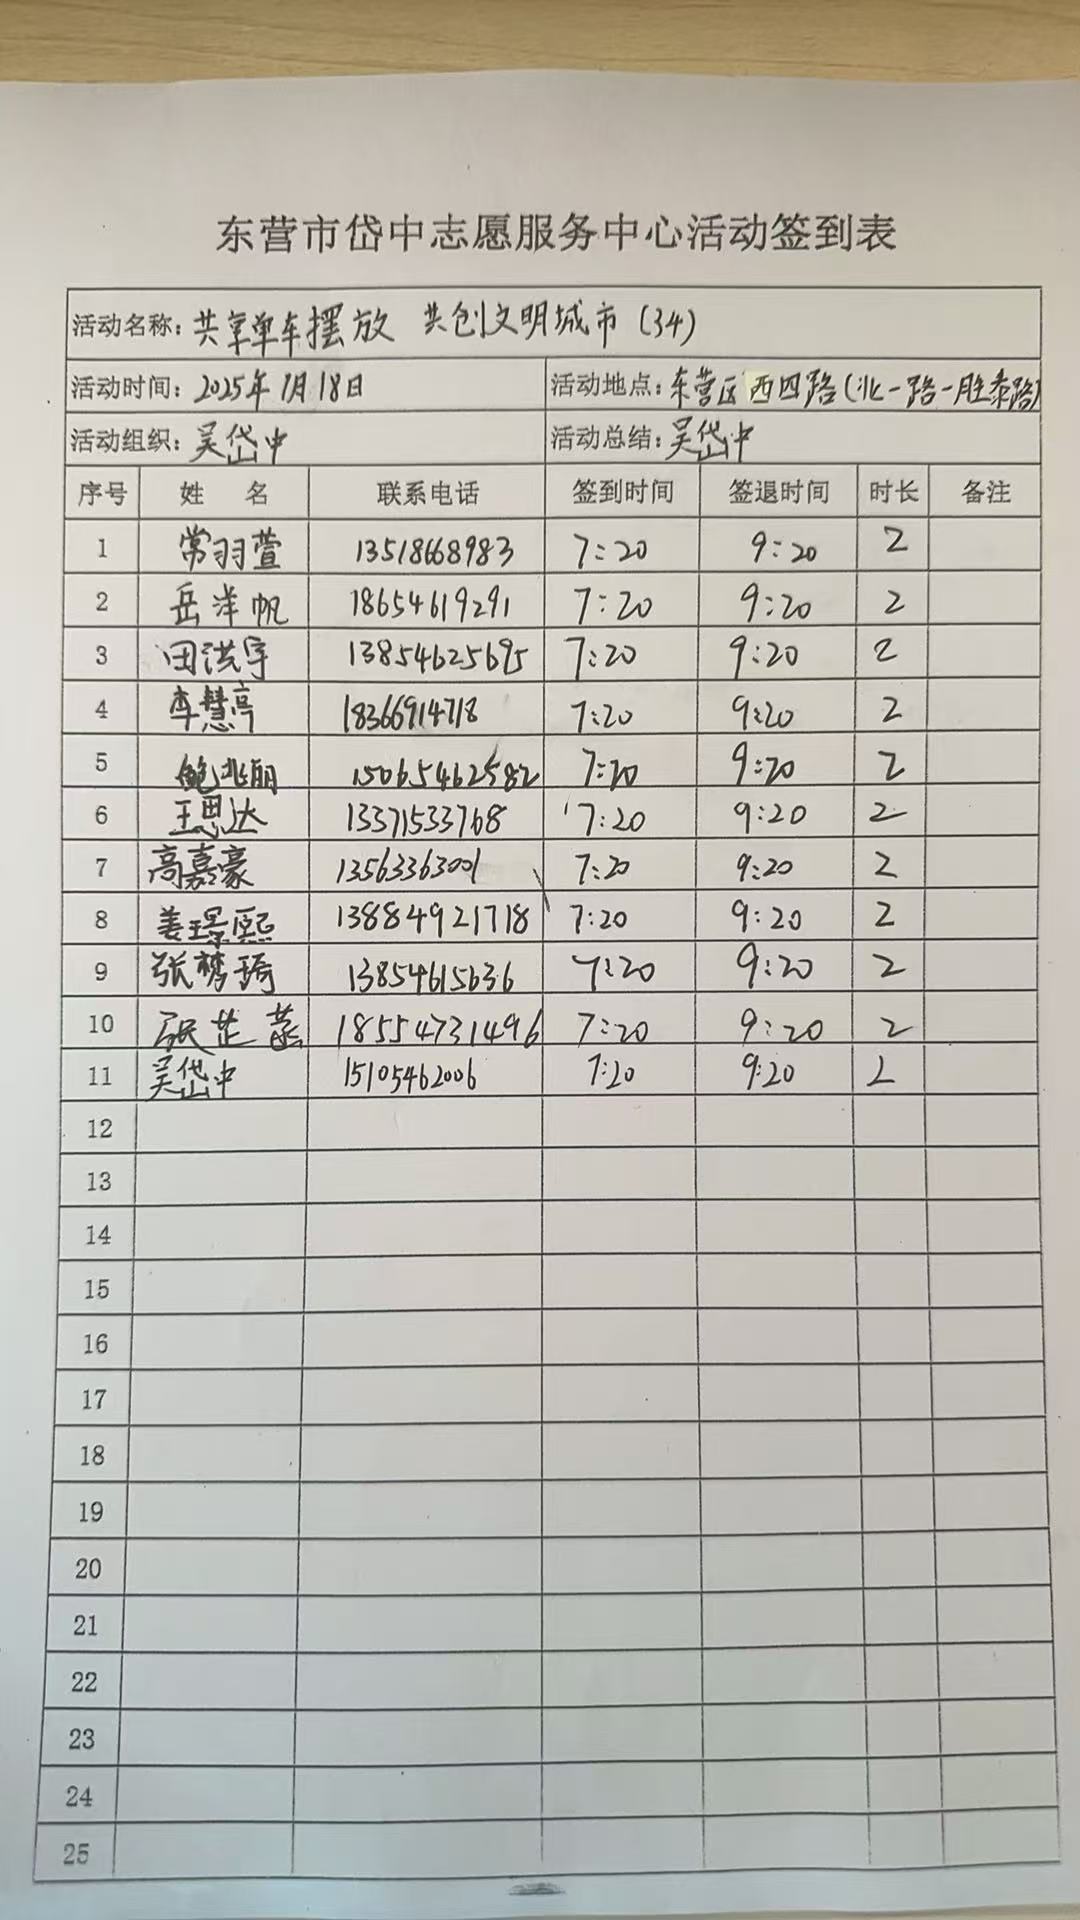 东营市岱中志愿服务中心活动签到表
活动名称：共享单车摆放 共创文明城市（34）
活动时间：2025年1月18日 活动地点：东营区西四路（北一路-胜泰路）
活动组织：吴岱中 活动总结：吴岱中
序号 姓 名 联系电话 签到时间 签退时间 时长 备注
1 常羽萱 13518668983 7:20 9:20 2
2 岳洋帆 18654619291 7:20 9:20 2
3 田洪宇 13854625695 7:20 9:20 2
4 李慧亭 18366914718 7:20 9:20 2
5 鲍兆丽 15065462582 7:20 9:20 2
6 王思达 13371533768 7:20 9:20 2
7 高嘉豪 13563363001 7:20 9:20 2
8 姜璟熙 13884921718 7:20 9:20 2
9 张梦琦 13854615636 7:20 9:20 2
10 张芷菡 18554731496 7:20 9:20 2
11 吴岱中 15105462006 7:20 9:20 2
12
13
14
15
16
17
18
19
20
21
22
23
24
25